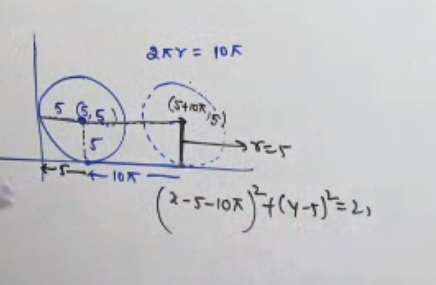 2πr = 10π
5 (5,5)
(5+10π,5)
5
r=5
5
10π
(x-5-10π)²+(y-5)²=2,